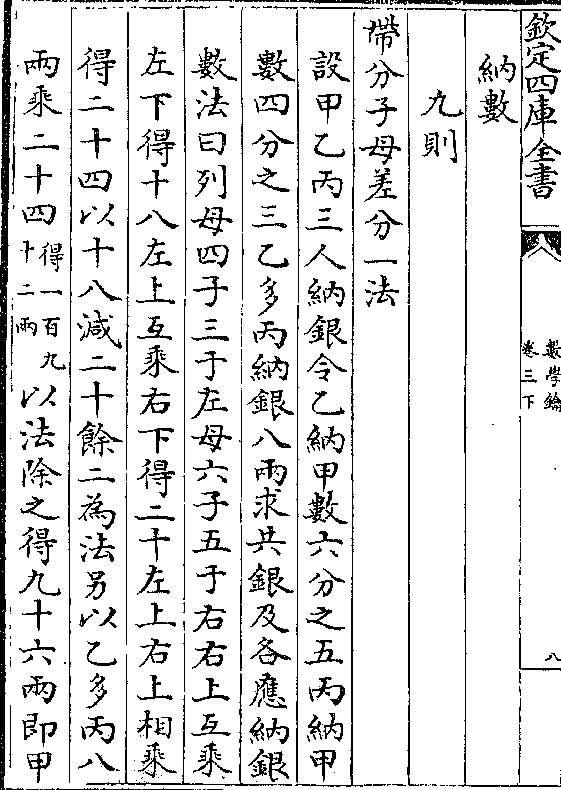 欽定四庫全書
數學鑰
卷三下
八
納數
九則
帶分子母差分一法
設甲乙丙三人納銀令乙納甲數六分之五丙納甲
數四分之三乙多丙納銀八兩求共銀及各應納銀
數法曰列母四子三于左母六子五于右右上互乘
左下得十八左上互乘右下得二十左上右上相乘
得二十四以十八減二十餘二為法另以乙多丙八
兩乘二十四得一百九十二兩以法除之得九十六兩即甲